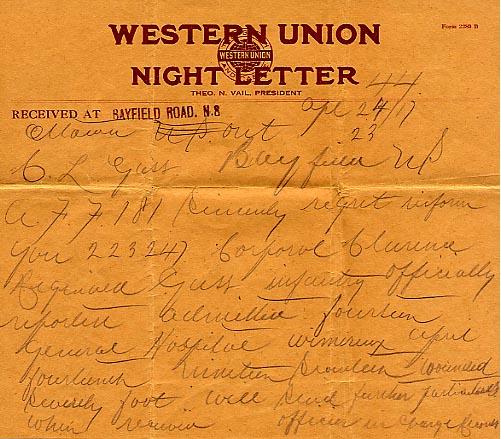 Form 2289 B
WESTERN UNION
WESTERN UNION
NIGHT LETTER
THEO. N. VAIL, PRESIDENT
44
RECEIVED AT BAYFIELD ROAD, N.S Apl 24/17
23
Ottawa Ont
C. L. Gass Bayfield NS
A 7 7 181 Sincerely regret inform
you 223247 Corporal Clarence
Reginald Gass infantry officially
reported admitted fourteen
General Hospital Wimereux april
fourteenth nineteen seventeen wounded
severely foot will send further particulars
when receive officer in charge Records